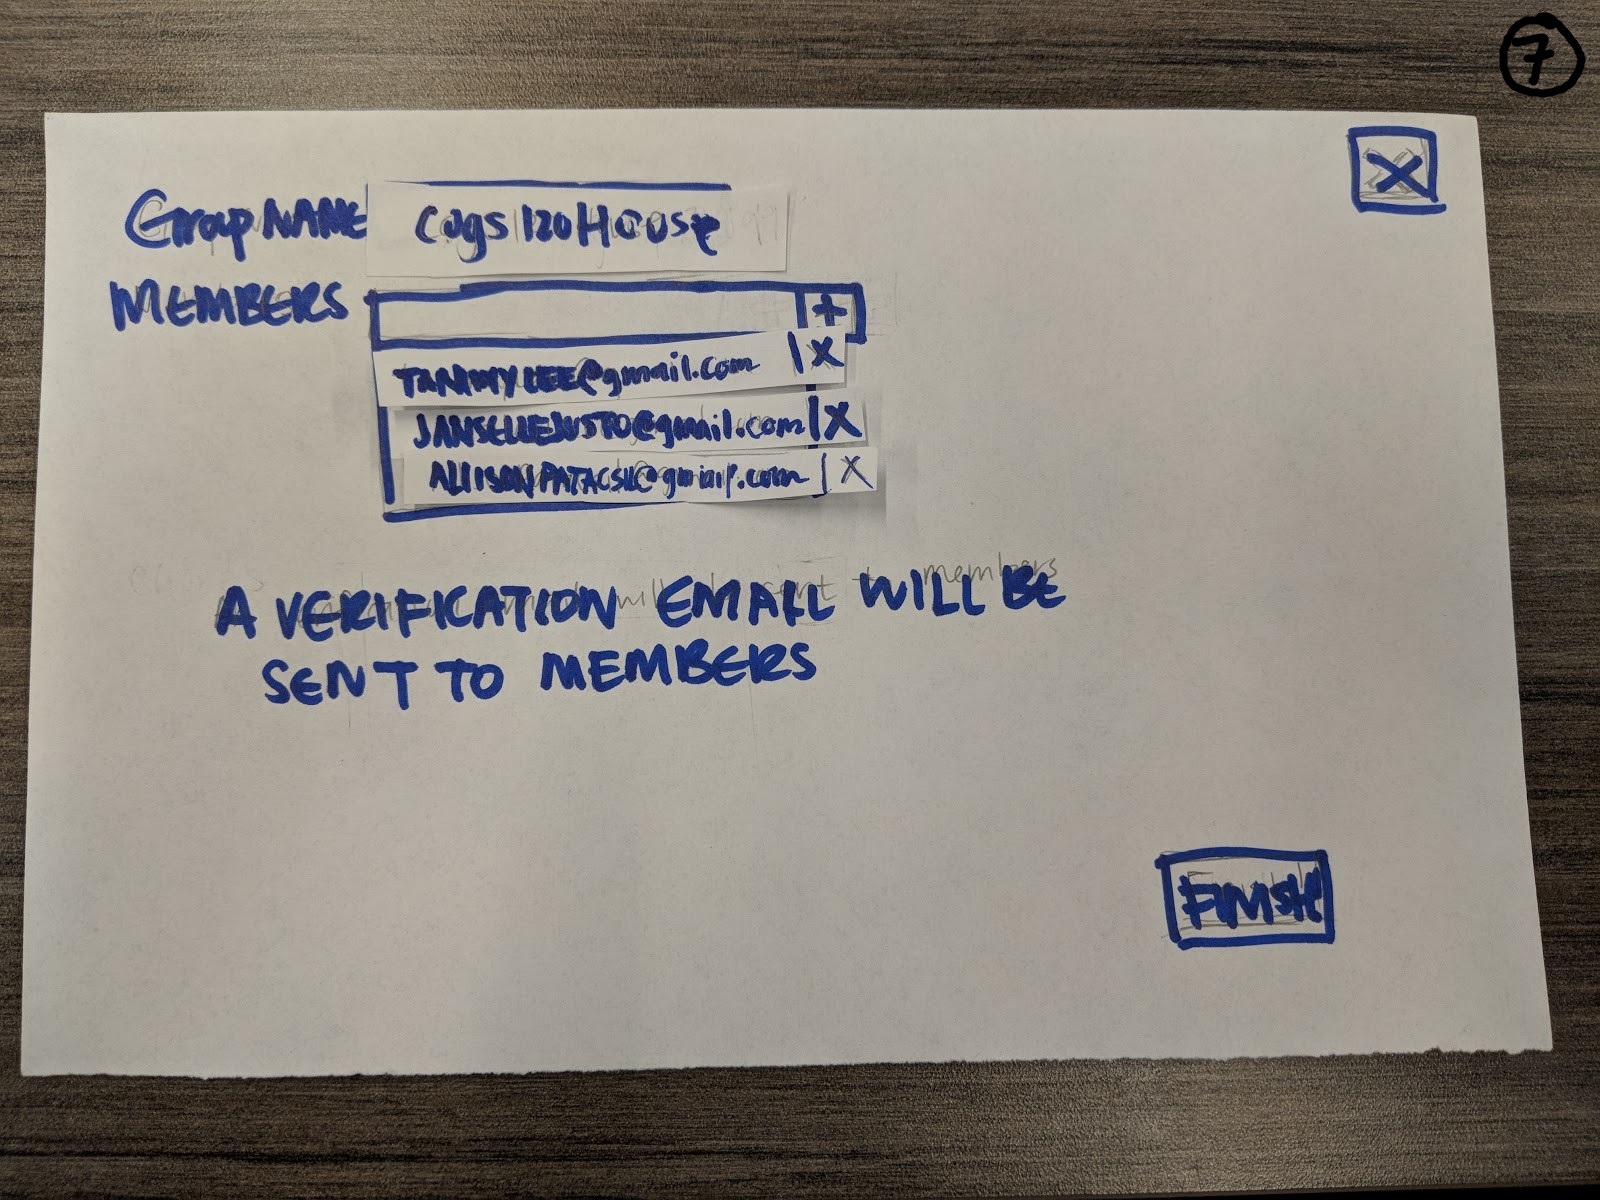 7
X
Group NAME Cogs120House
MEMBERS +
TAMMYLEE@gmail.com | X
JANSELLEJUSTO@gmail.com | X
| X
A VERIFICATION EMAIL WILL BE
SENT TO MEMBERS
FINISH